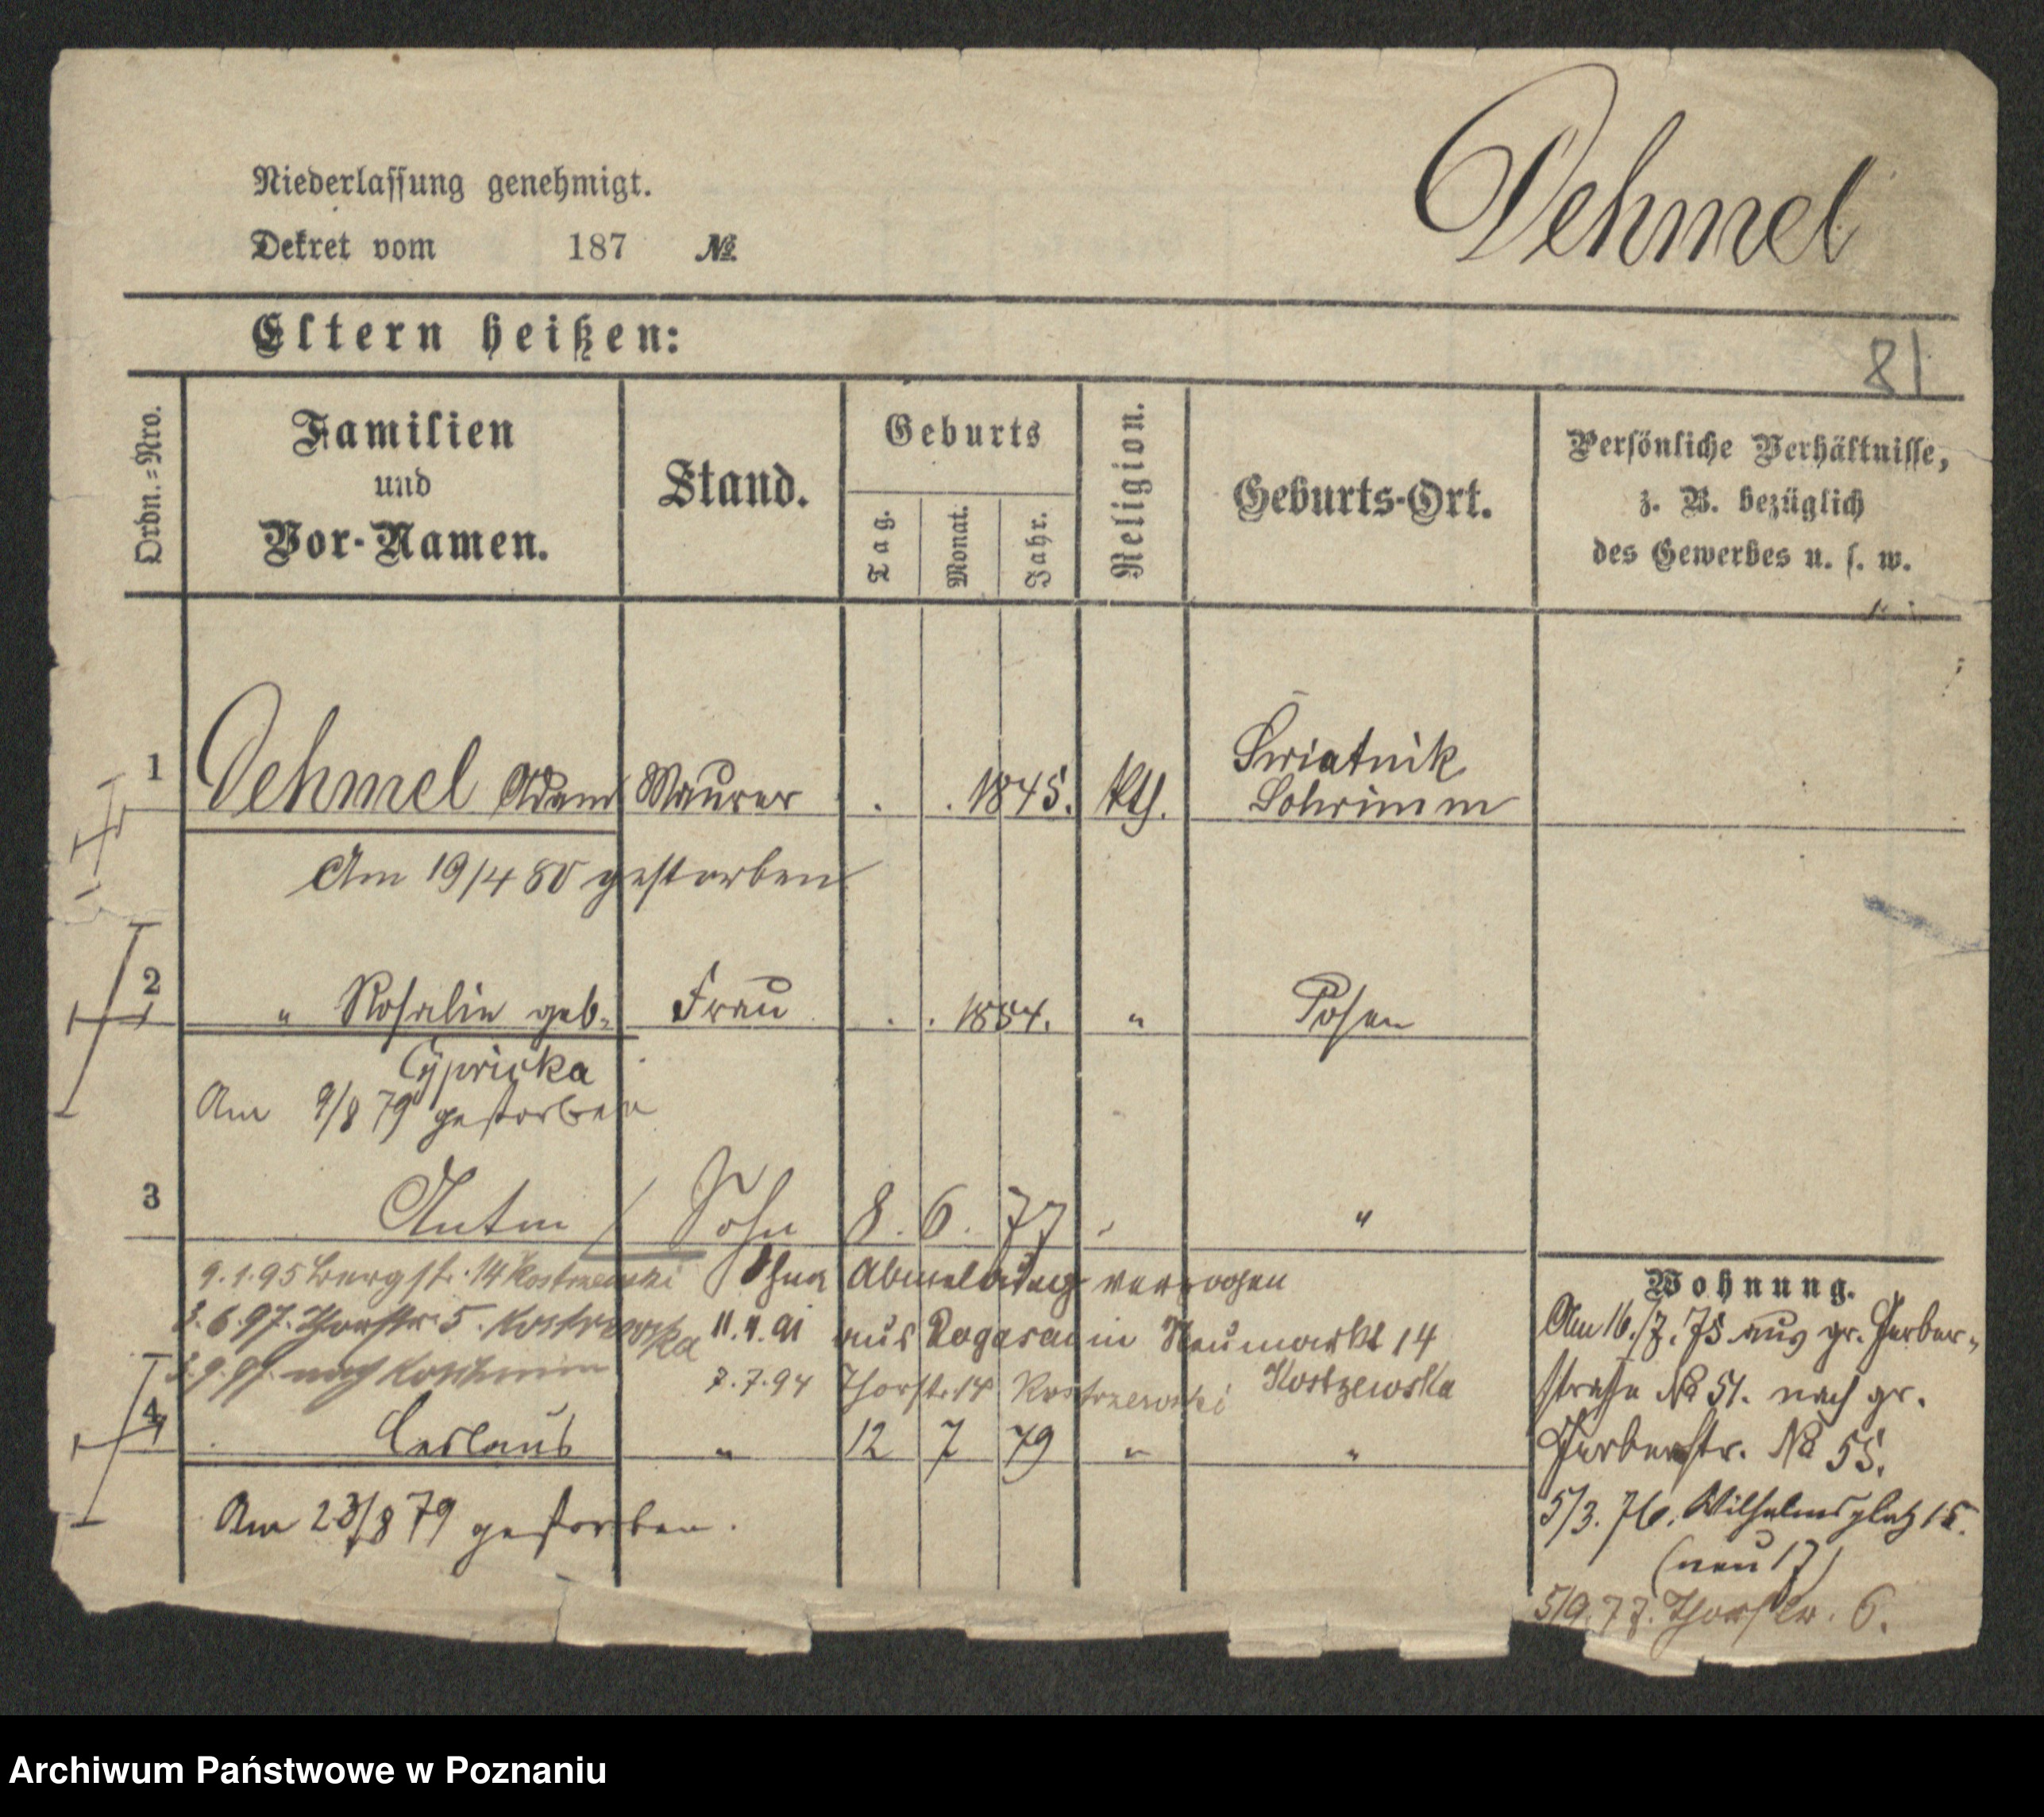 Dehmel
Niederlassung genehmigt.
Dekret vom 187 №
Eltern heißen:
81
Ordn.-Nro.
Familien
und
Vor-Namen.
Stand.
Geburts
Tag.
Monat.
Jahr.
Religion.
Geburts-Ort.
Persönliche Verhältnisse,
z. B. bezüglich
des Gewerbes u. s. w.
1 Dehmel Adam Maurer . . 1845. kth. Swiatnik
Schrimm
Am 19/4 80 gestorben
2 " Rosalie geb. Frau . . 1854. " Posen
Cypricka
Am 9/8 79 gestorben
3 Anton Sohn 8. 6. 77 "
9.1.95 Bergstr. 14 Kostrzewski Ohne Abmeldung verzogen
3.6.97. Thorstr. 5. Kostrzewska 11.4.91 aus Rogasen in Neumarkt 14
nach 7.7.94 Thorstr. 14 Kostrzewski Kostzewska
4 Ceslaus " 12 7 79 " "
Am 23/8 79 gestorben.
Wohnung.
Am 16./7. 75 aus gr. Gerber-
straße № 51. nach gr.
Gerberstr. № 55.
5/3. 76. Wilhelmsplatz 15.
(neu 17)
5/9. 77. Thorstr. 6.
Archiwum Państwowe w Poznaniu